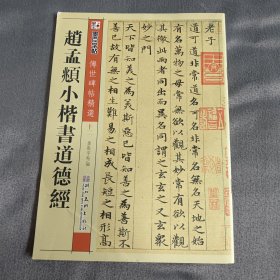 老子
道可道非常道名可名非常名無名天地之始
有名萬物之母故常無欲以觀其妙常有欲以觀
其徼此兩者同出而異名同謂之玄玄之又玄衆
妙之門
天下皆知美之為美斯惡已皆知善之為善斯不
善已故有無之相生難易之相成長短之相形高
墨点字帖
傳世碑帖精選
趙孟頫小楷書道德經